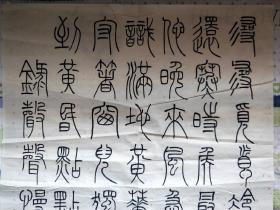 尋尋覓覓冷
還寒時候最
他晚來風急
識滿地黃華
守箸窗兒獨
到黃昏點點
錄聲聲慢